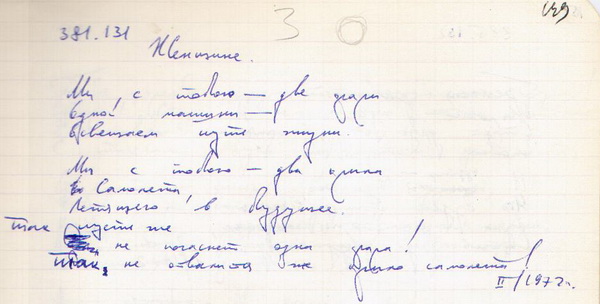 30
149
381.131
Женщине.
Мы с тобою — две фары
Одной машины —
Освещаем путь жизни.
Мы с тобою — два крыла
Самолета,
Летящего в будущее.
Так пусть же
не погаснет одна фара!
Так, не отвалится же крыло самолета!
II/1972г.